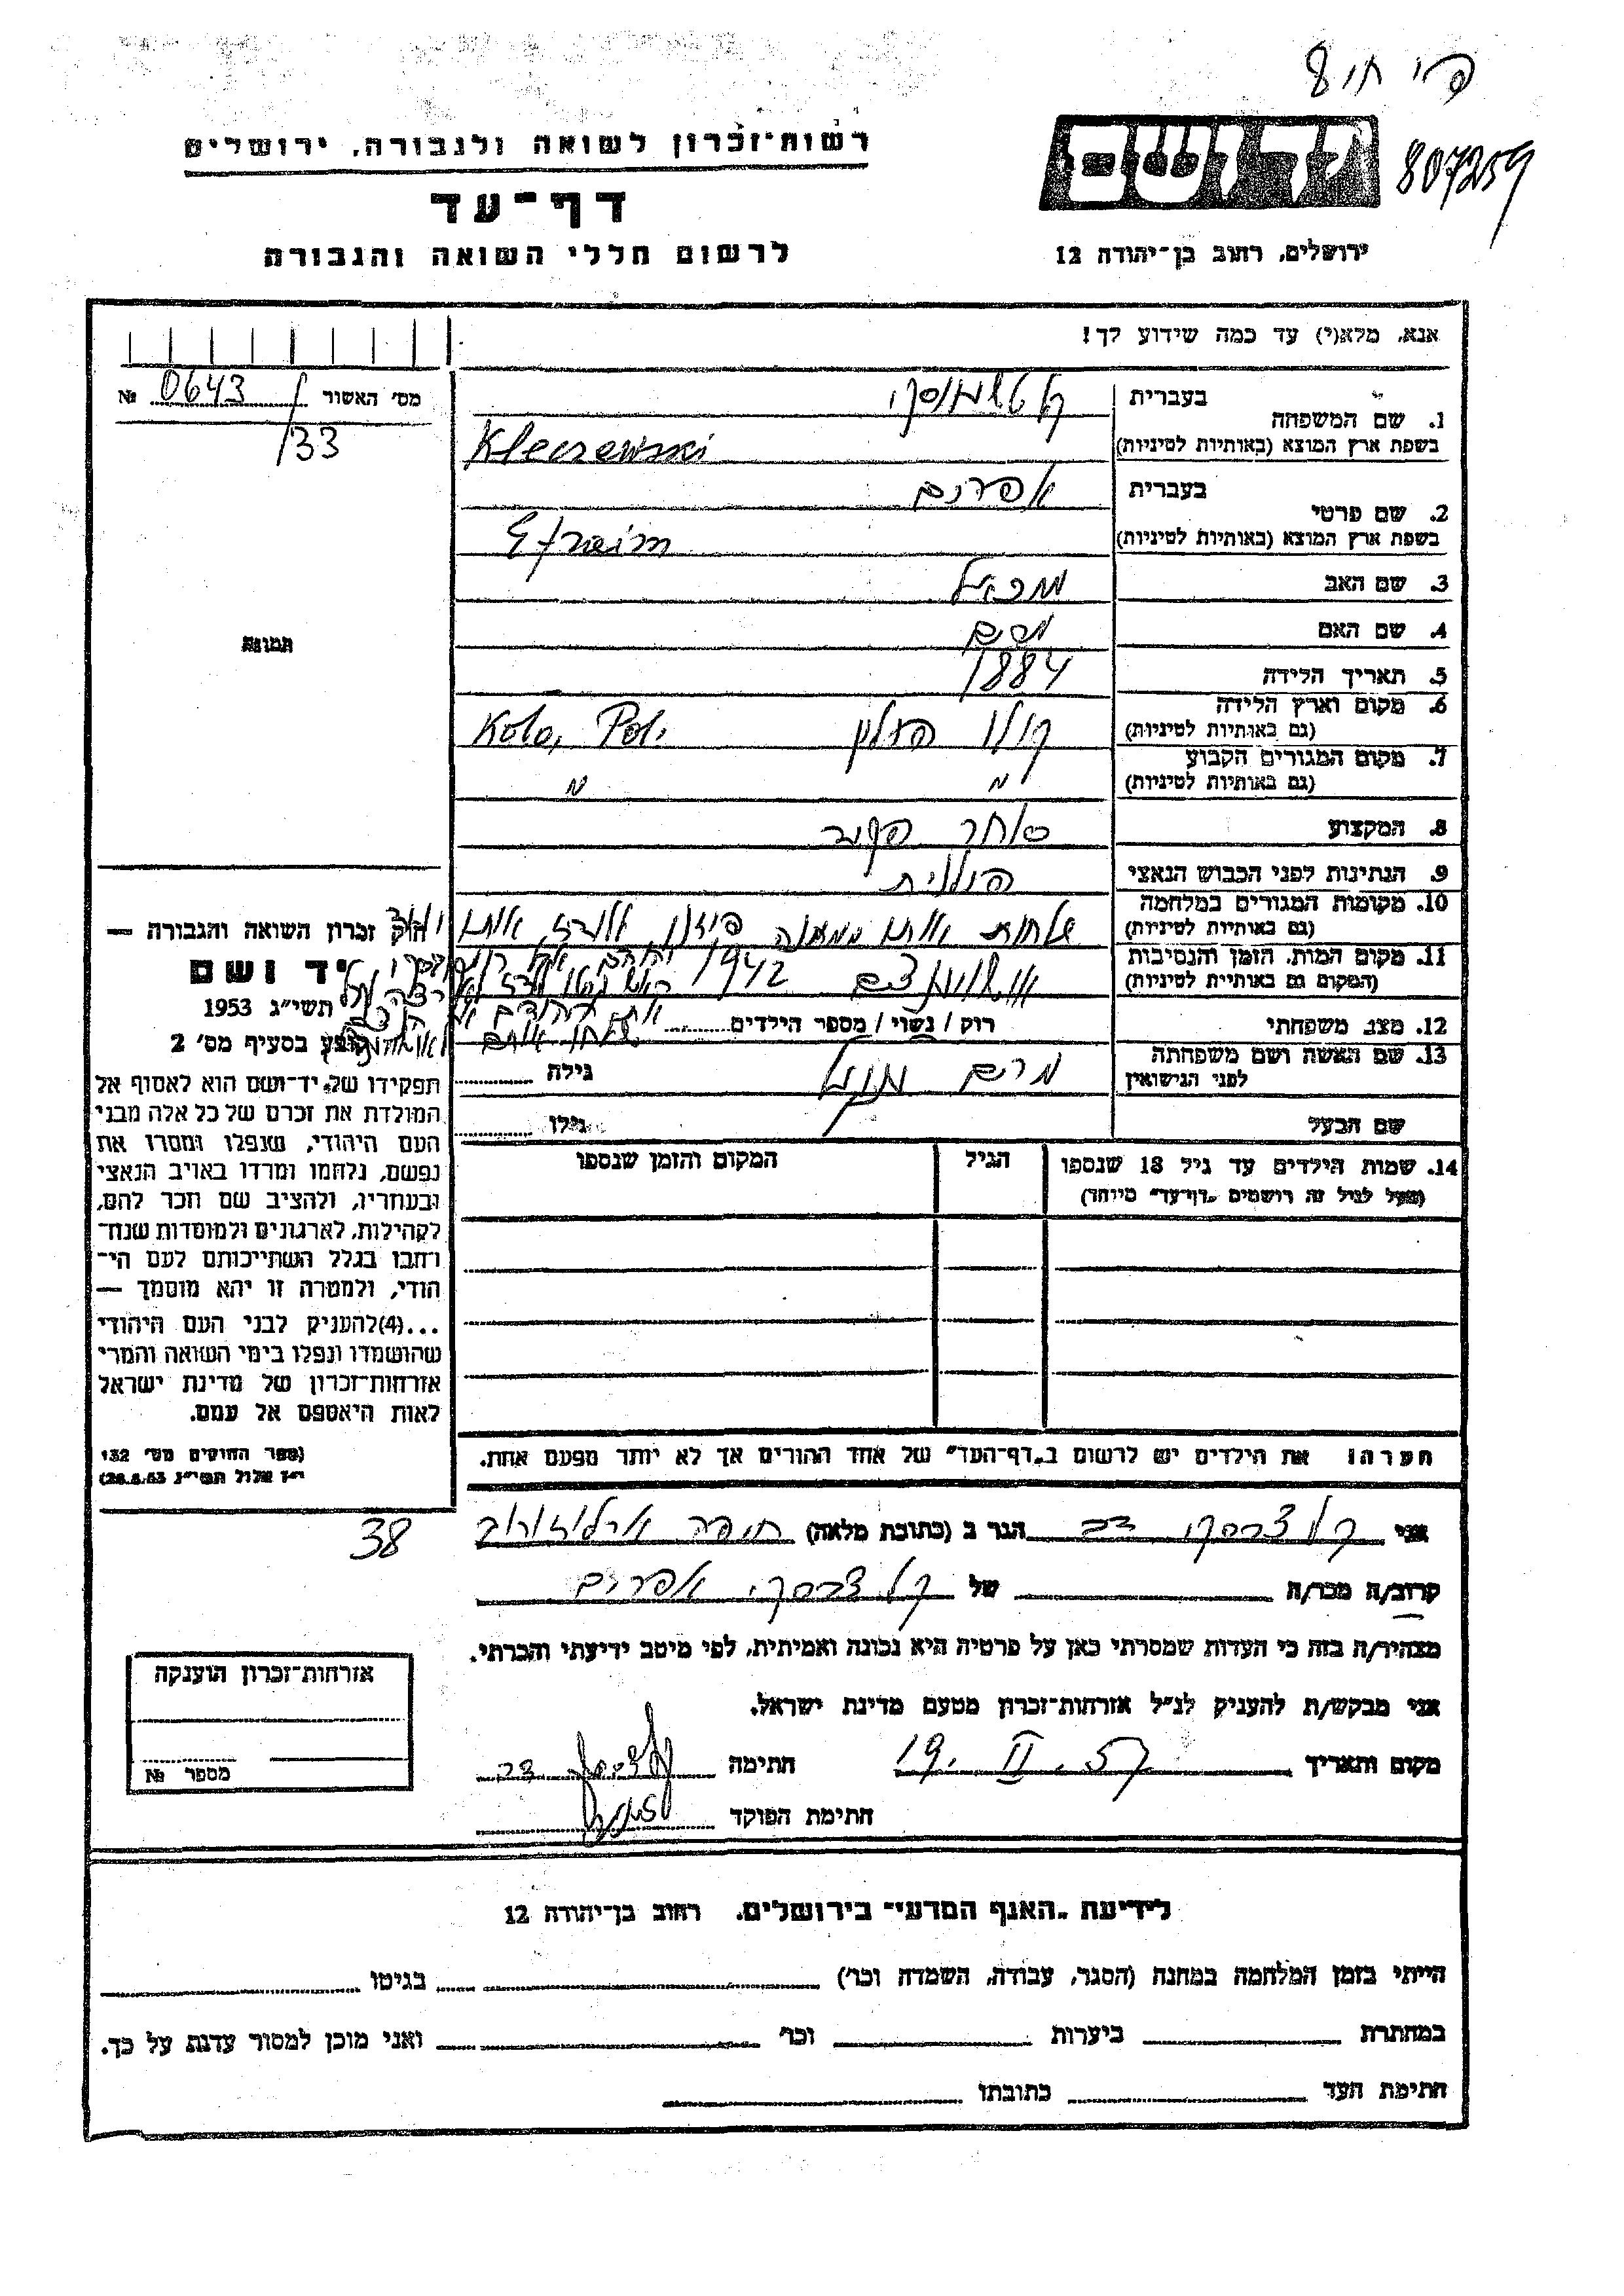 807259
רשות־זכרון לשואה ולגבורה, ירושלים
דף־עד
לרשום חללי השואה והגבורה
יד ושם
ירושלים, רחוב בן־יהודה 12
אנא, מלא(י) עד כמה שידוע לך!
מס' האשור № 0643/
133
1. שם המשפחה
בעברית
בשפת ארץ המוצא (באותיות לטיניות) Kleczewski
2. שם פרטי
בעברית אפרים
בשפת ארץ המוצא (באותיות לטיניות) Efraim
3. שם האב
4. שם האם
5. תאריך הלידה 1884
6. מקום וארץ הלידה (גם באותיות לטיניות) קולו פולין Kolo, Pol.
7. מקום המגורים הקבוע (גם באותיות לטיניות) " "
8. המקצוע סוחר
9. הנתינות לפני הכבוש הנאצי פולנית
10. מקומות המגורים במלחמה (גם באותיות לטיניות)
11. מקום המות, הזמן והנסיבות (המקום גם באותיות לטיניות) 1942
12. מצב משפחתי רוק / נשוי / מספר הילדים
13. שם האשה ושם משפחתה לפני הנישואין מרים גילה
שם הבעל גילו
תמונה
חוק זכרון השואה והגבורה —
יד ושם
תשי"ג 1953
קובע בסעיף מס' 2
תפקידו של יד־ושם הוא לאסוף אל
המולדת את זכרם של כל אלה מבני
העם היהודי, שנפלו ומסרו את
נפשם, נלחמו ומרדו באויב הנאצי
ובעוזריו, ולהציב שם וזכר להם,
לקהילות, לארגונים ולמוסדות שנח־
רבו בגלל השתייכותם לעם הי־
הודי, ולמטרה זו יהא מוסמך —
...(4) להעניק לבני העם היהודי
שהושמדו ונפלו בימי השואה והמרי
אזרחות־זכרון של מדינת ישראל
לאות היאספם אל עמם.
(ספר החוקים מס' 132
י"ז אלול תשי"ג 28.8.53)
14. שמות הילדים עד גיל 18 שנספו הגיל המקום והזמן שנספו
(מעל לגיל זה רושמים "דף־עד" מיוחד)
הערה: את הילדים יש לרשום ב"דף־העד" של אחד ההורים אך לא יותר מפעם אחת.
אני קלצבסקי דב הגר ב (כתובת מלאה) חיפה ארלוזורוב 38
קרוב/ה מכר/ה של קלצבסקי אפרים
מצהיר/ה בזה כי העדות שמסרתי כאן על פרטיה היא נכונה ואמיתית, לפי מיטב ידיעתי והכרתי.
אני מבקש/ת להעניק לנ"ל אזרחות־זכרון מטעם מדינת ישראל.
מקום ותאריך 19. II. 57 חתימה
חתימת הפוקד
אזרחות־זכרון הוענקה
מספר №
לידיעת "האגף המדעי" בירושלים, רחוב בן־יהודה 12
הייתי בזמן המלחמה במחנה (הסגר, עבודה, השמדה וכו') בגיטו
במחתרת ביערות וכו' ואני מוכן למסור עדות על כך.
חתימת העד כתובתו